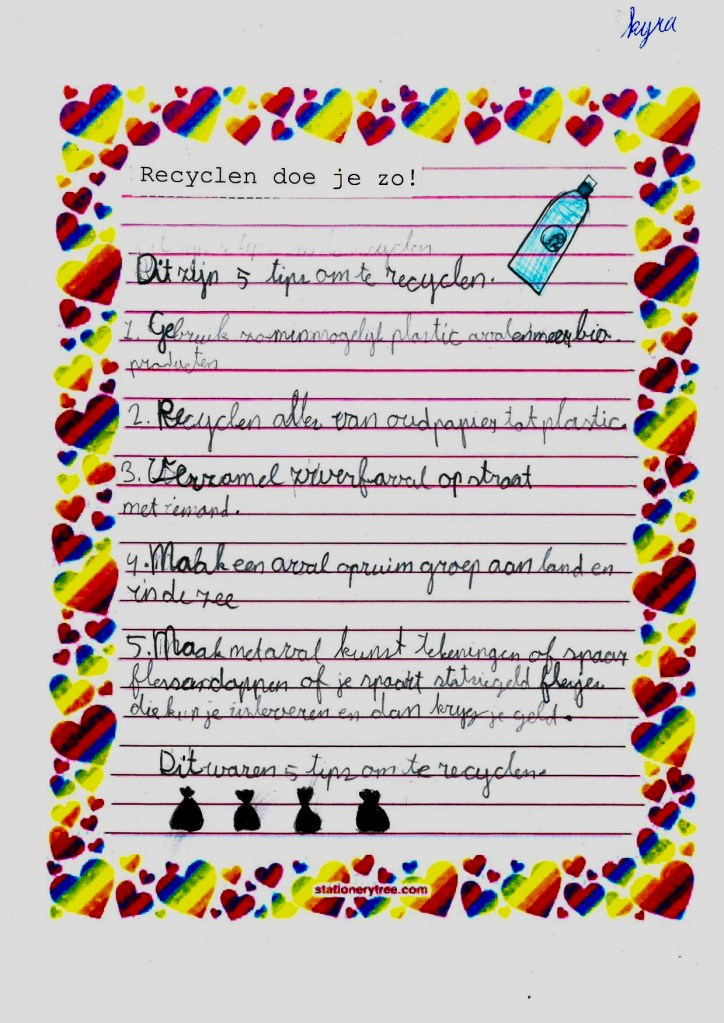 kyra
Recyclen doe je zo!
Dit zijn 5 tips om te recyclen.
1. Gebruik zo min mogelijk plastic avval en meer bio
producten
2. Recyclen alles van oud papier tot plastic.
3. Verzamel zwerfavval op straat
met iemand.
4. Maak een avval opruim groep aan land en
in de zee
5. Maak met avval kunst tekeningen of spaar
flessendoppen of je spaart statiegeld flesjes
die kun je inleveren en dan kryg je geld.
Dit waren 5 tips om te recyclen.
stationerytree.com